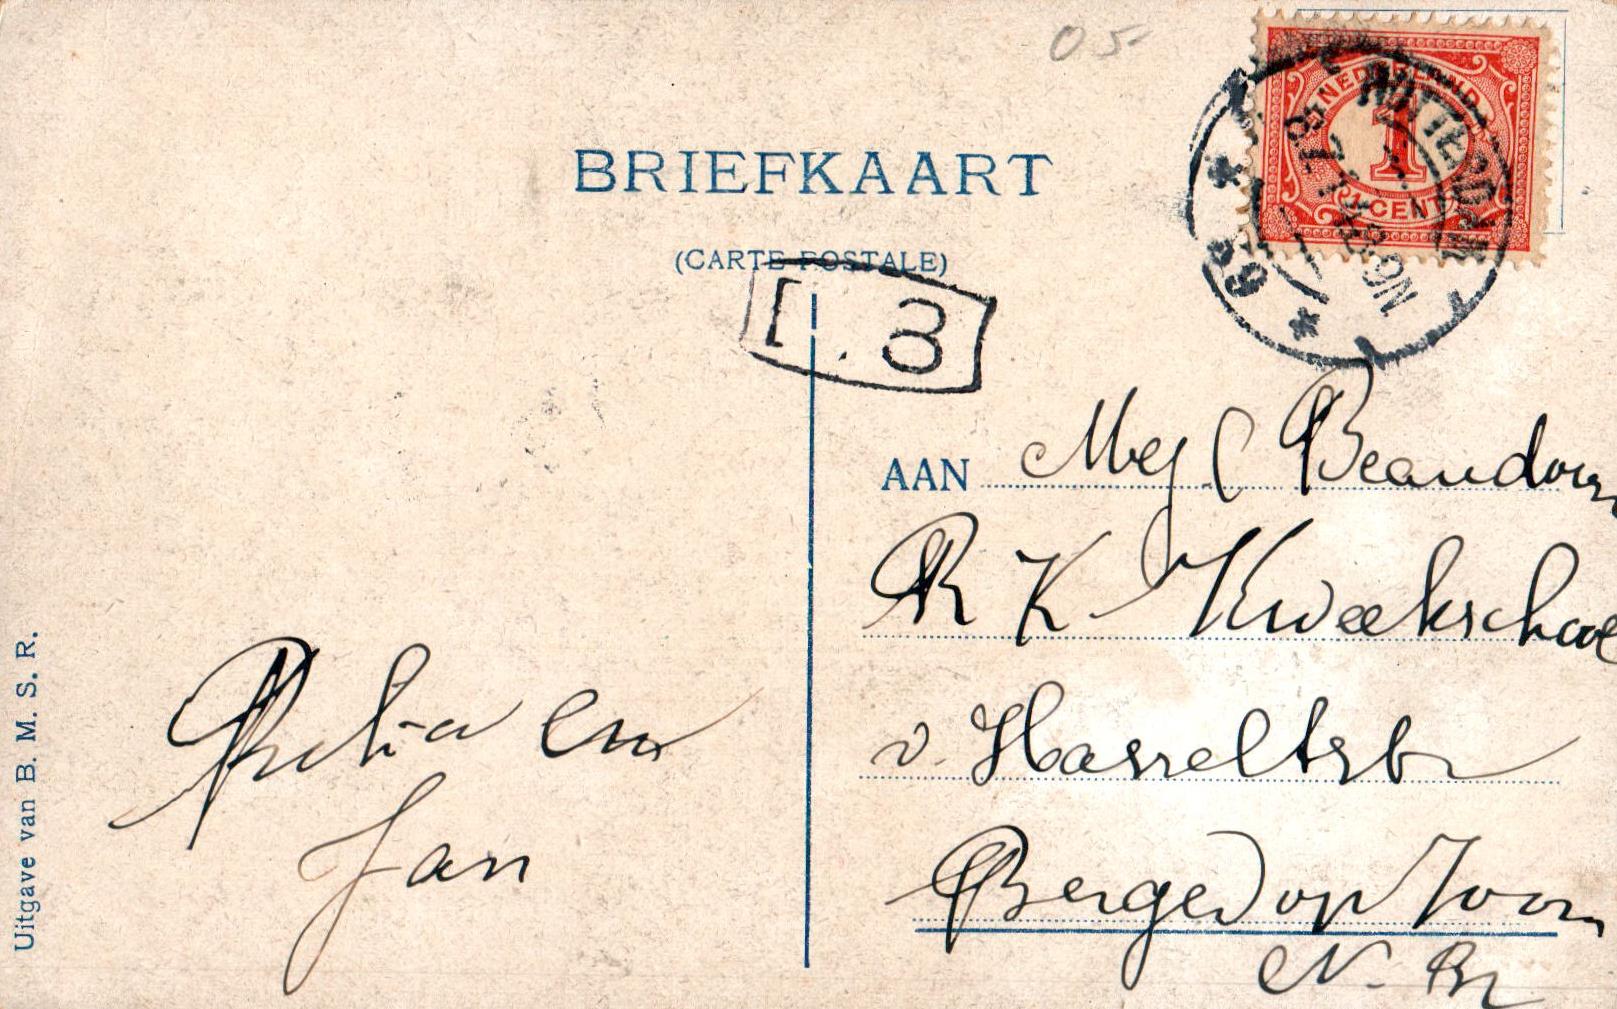 05
BRIEFKAART
(CARTE POSTALE)
NEDERLAND
1
1 CENT
ROTTERDAM
8-9N
AAN Mej Beaudoin
R K Kweekschool
v. Hasseltstr
Bergen op Zoom
N. Br
en
Jan
Uitgave van B. M. S. R.